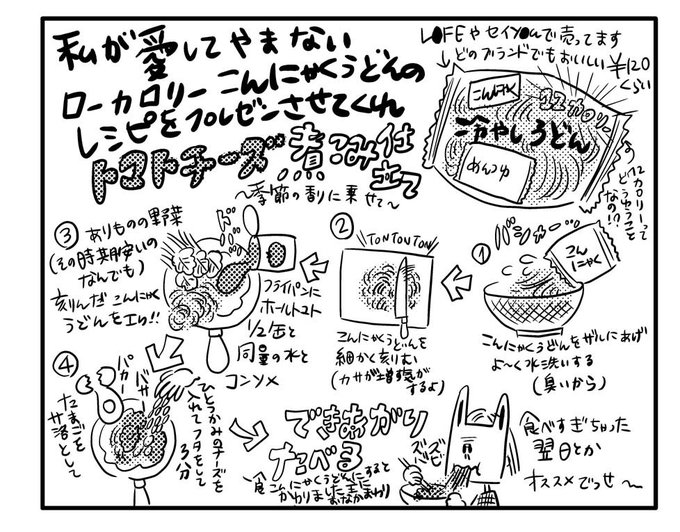 私が愛してやまない
ローカロリーこんにゃくうどんの
レシピをプレゼンさせてくれ
トマトチーズ煮込み仕立て
〜季節の香りに乗せて〜
LOFEやセイYOUで売ってます
どのブランドでもおいしい
¥120
くらい
こんにゃく
12カロリー
冷やしうどん
めんつゆ
12カロリーって
どうゆうこと
なの!?
①
バシャー
こん
にゃく
こんにゃくうどんをザルにあげ
よ〜く水洗いする
(臭いから)
②
TONTONTON
こんにゃくうどんを
細かく刻りむ
(カサが増す気が
するよ)
③
ありものの野菜
(その時期安いの
なんでも)
刻んだこんにゃく
うどんをIn!!
フライパンに
ホールトマト
1/2缶と
同量の水と
コンソメ
④
たまごを
落として
パカー
バサ
ひとつかみのチーズを
入れてフタをして
3分
できあがり
たべる
こんにゃくうどんにすると
かわりました
ズビズビ
食べすぎちゃった
翌日とか
オススメでっせ〜